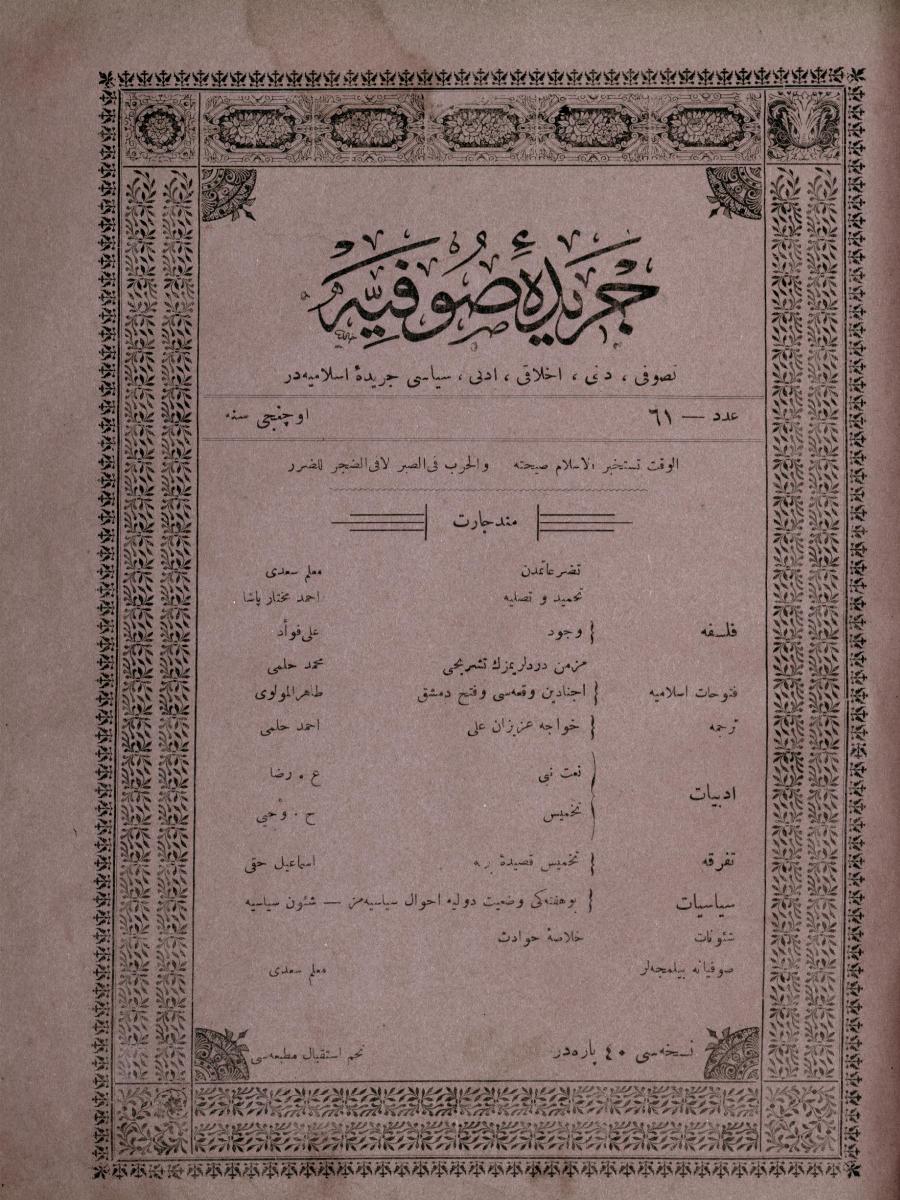 جريدۀ صوفيه
تصوفی ، دینی ، اخلاقی ، ادبی ، سیاسی جریدۀ اسلامیه‌در
عدد — ٦١ اوچنجی سنه
الوقت تستخبر الاسلام صیحته والحرب فی الصبر لا فی الضجر للضرر
مندرجات
تضرعاتمدن معلم سعدی
تحمید و تصلیه احمد مختار پاشا
فلسفه { وجود علی فوأد
مزمن دردلریمزك تشریحی محمد حلمی
فتوحات اسلامیه { اجنادین وقعه‌سی وفتح دمشق طاهر المولوی
ترجمه { خواجه عزیزان علی احمد حلمی
ادبیات { نعت نبی ع . رضا
تخمیس ح . وحیی
تفرقه { تخمیس قصیدۀ اسماعیل حقی
سیاسیات { بو هفته‌کی وضعیت دولیه احوال سیاسیه‌مز — شئون سیاسیه
شئونات خلاصۀ حوادث
صوفیانه بیلمجه‌لر معلم سعدی
نسخه‌سی ٤٠ پاره‌در نجم استقبال مطبعه‌سی